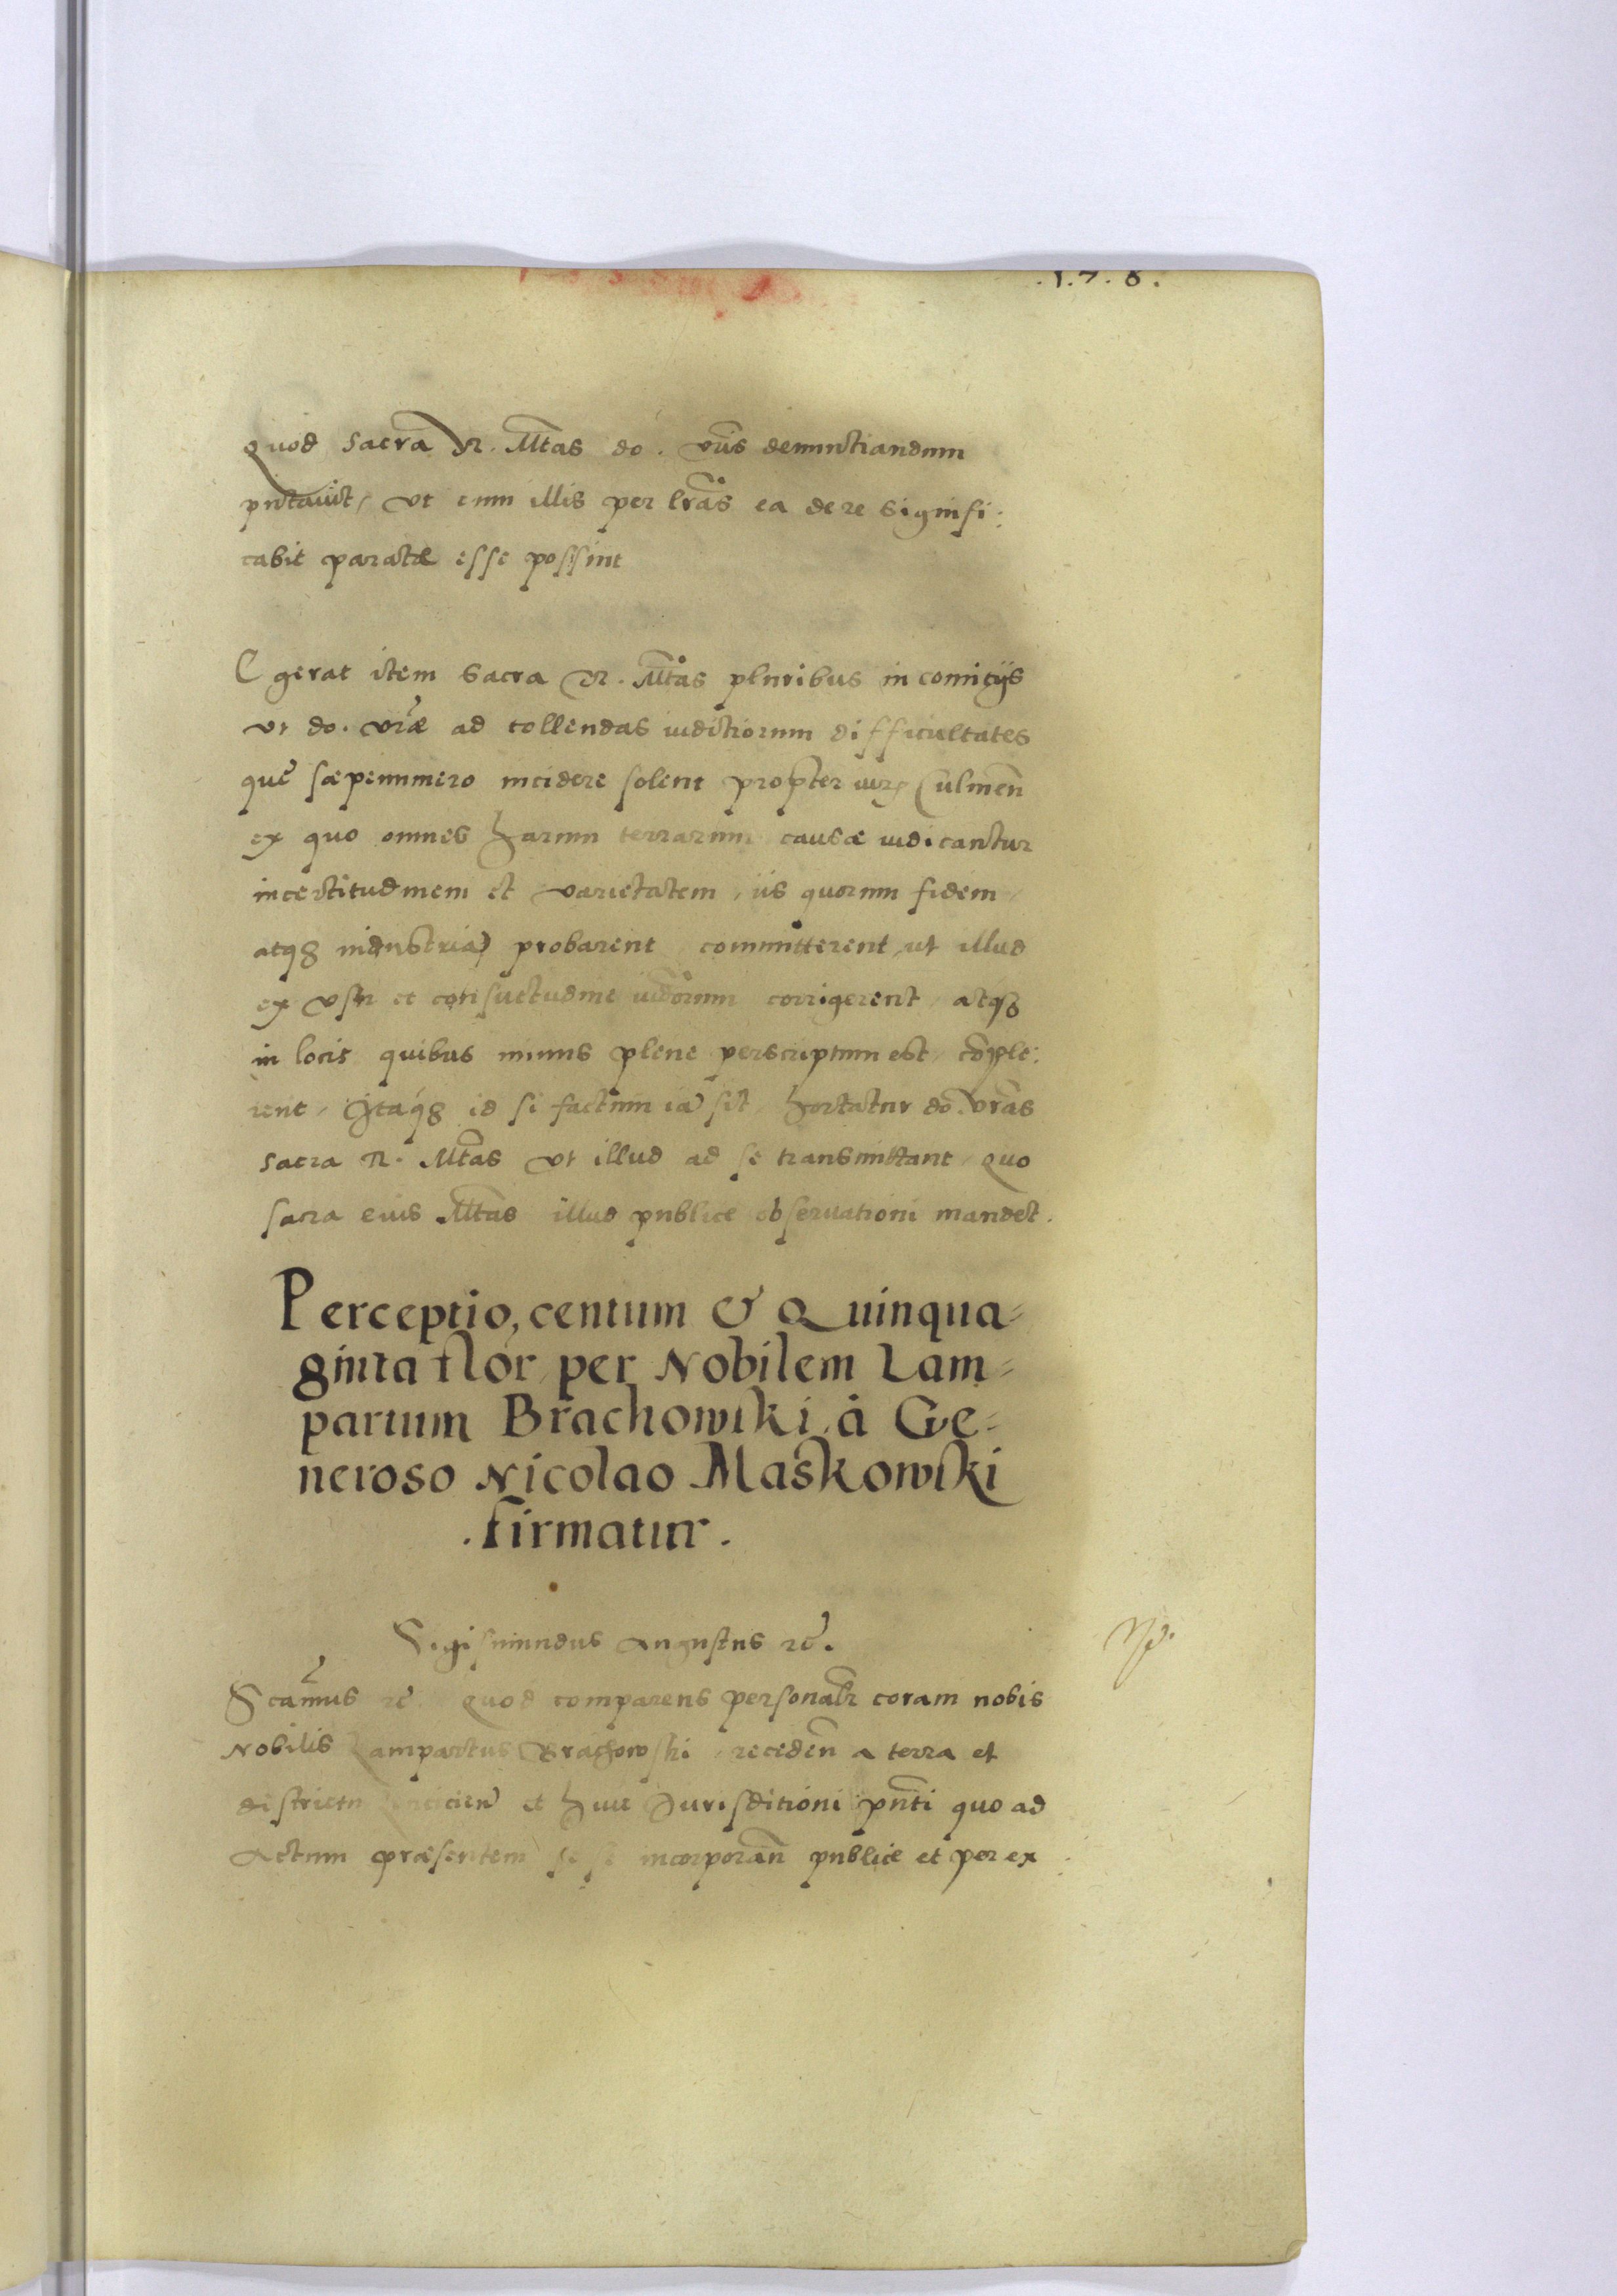 .1.7.8.
Quod sacra R. Mtas do. vris denunctiandum
putavit, vt cum illis per lras ea de re signifi:
cabit paratæ esse possint
Egerat item sacra R. Mtas pluribus in comitijs
vt do. vræ ad tollendas iuditiorum difficultates
que sæpenumero incidere solent propter iuris Culmen
ex quo omnes harum terrarum causæ iudicantur
incertitudinem et varietatem, iis quorum fidem,
atq3 industria probarent, committerent, ut illud
ex vsu et consuetudine iudiorum corrigerent, atq3
in locis quibus minus plene perscriptum est, cople:
rent, Itaq3 id si factum ia sit, hortatur do. vras
sacra R. Mtas vt illud ad se transmittant, quo
sacra eius Mtas illud publice observationi mandet.
Perceptio, centum & Quinqua=
ginta flor, per Nobilem Lam=
partum Brachowski, à Ge=
neroso Nicolao Maskowski
.firmatur.
Sigismundus Augustus rc.
Np.
Scamus rc. Quod comparens personalr coram nobis
Nobilis Lampartus Brachowski, receden a terra et
districtu Lencicien et huic Jurisditioni pnti quo ad
Actum præsentem se se incorporan publice et per ex